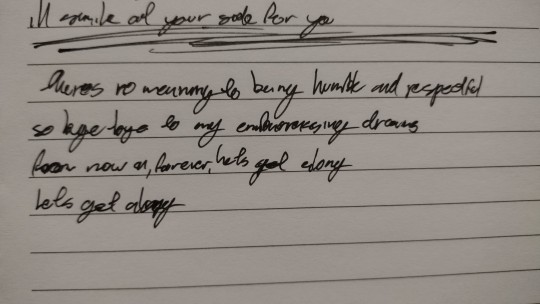 ill smile at your side for you
theres no meaning to being humble and respectful
so bye bye to my embarrassing dreams
from now on, forever, lets get along
Lets get along